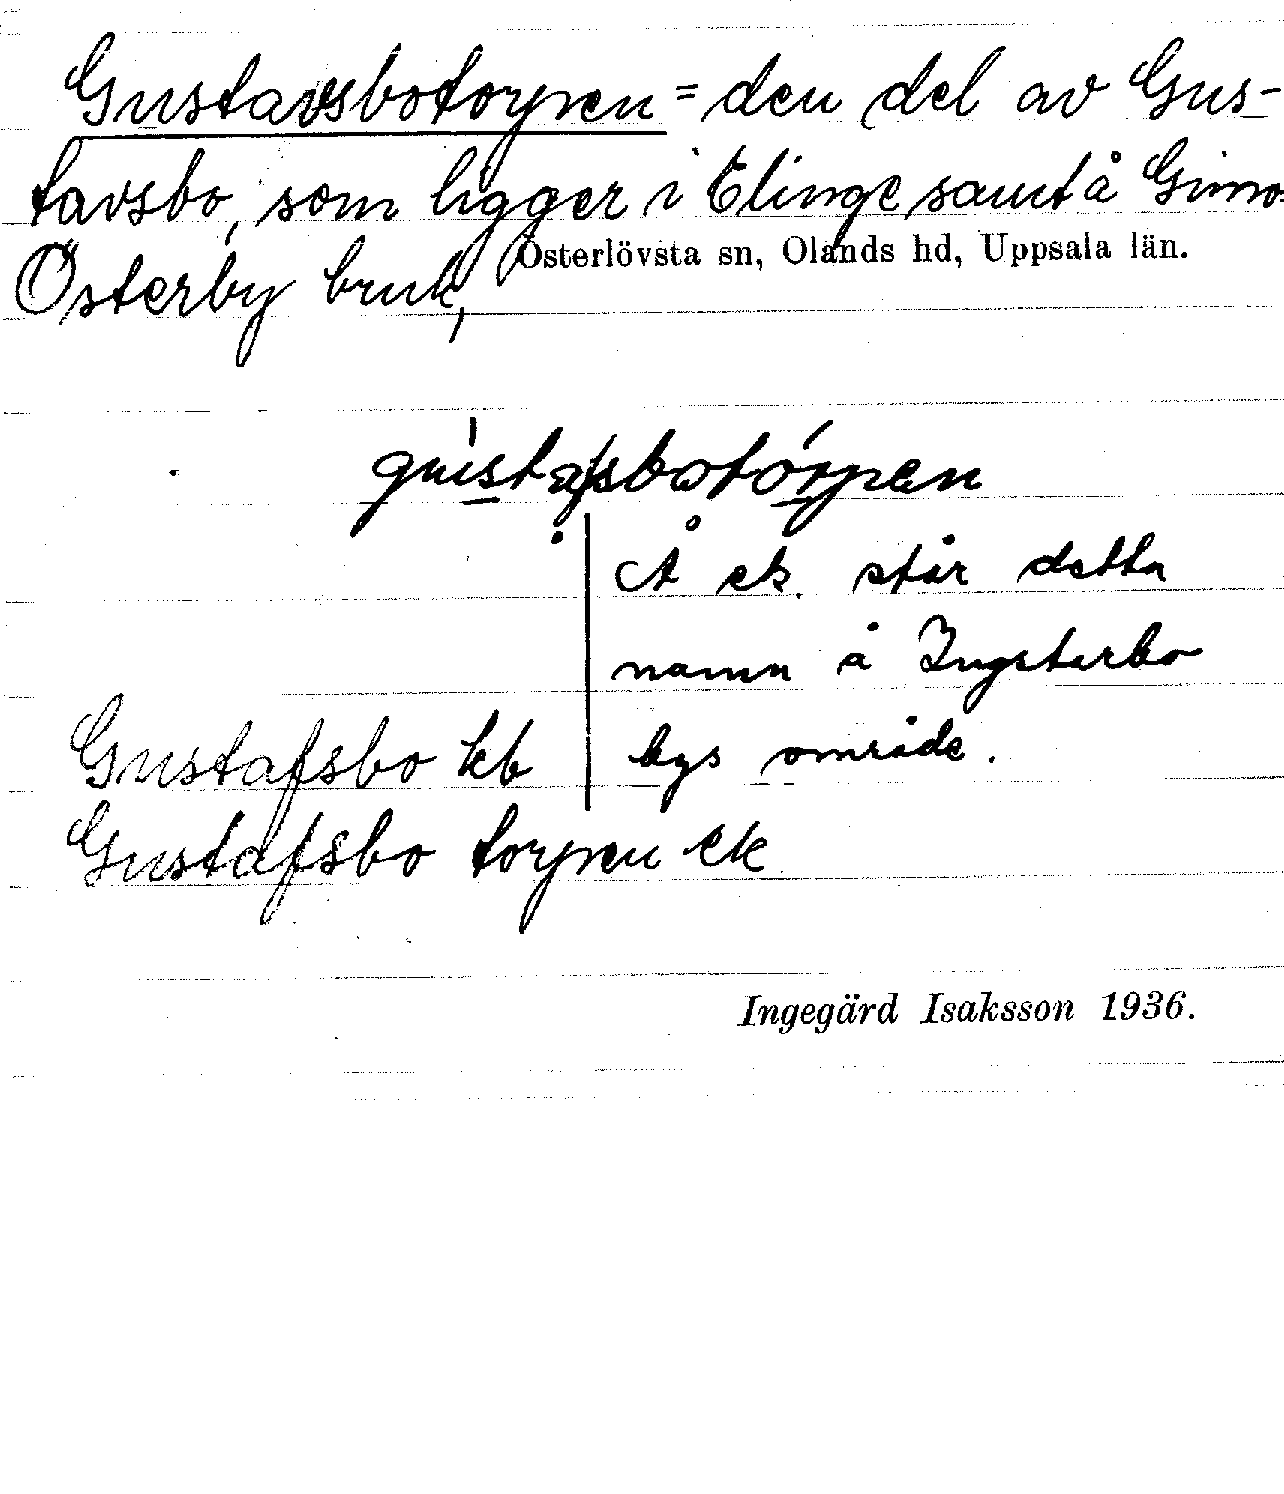 Gustavsbotorpen = den del av Gus-
tavsbo, som ligger i Elinge samt å Gimo-
Österby bruk,
Österlövsta sn, Olands hd, Uppsala län.
gústafsbotórpen
Å ek. står detta
namn å Ingsterbo
bys område.
Gustafsbo kb
Gustafsbo torpen ek
Ingegärd Isaksson 1936.